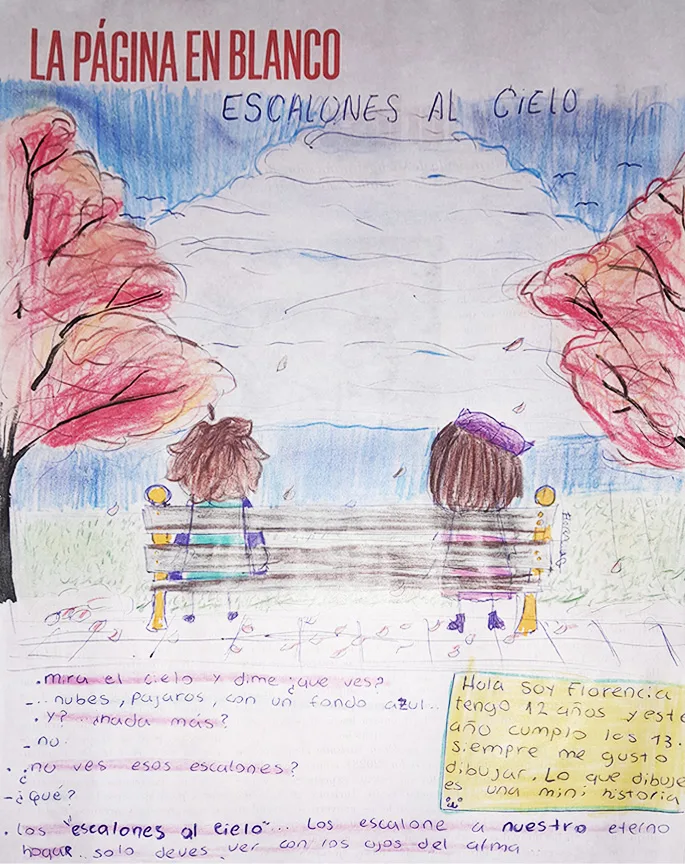 LA PÁGINA EN BLANCO
ESCALONES AL CIELO
.mira el cielo y dime ¿que ves?
-... nubes, pajaros, con un fondo azul..
. y? ¿nada más?
- no.
. ¿no ves esos escalones?
- ¿Qué?
. Los "escalones al cielo"... Los escalone a nuestro eterno
hogar.. solo deves ver con los ojos del alma..
Hola soy Florencia
tengo 12 años y este
año cumplo los 13.
siempre me gusto
dibujar. Lo que dibuje
es una mini historia